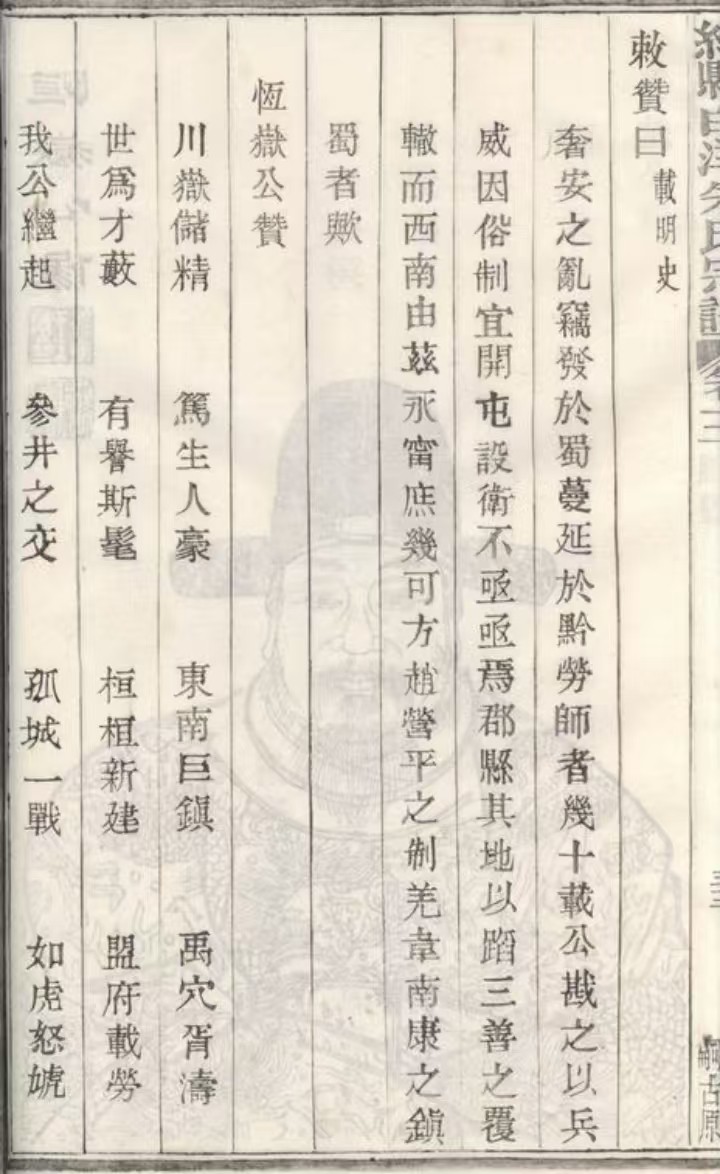 縣白洋朱氏宗譜
敕贊曰 載明史
奢安之亂竊發於蜀蔓延於黔勞師者幾十載公戡之以兵
威因俗制宜開屯設衛不亟亟焉郡縣其地以蹈三善之覆
轍而西南由茲永甯庶幾可方趙營平之制羌韋南康之鎮
蜀者歟
恆嶽公贊
川嶽儲精 篤生人豪 東南巨鎮 禹穴胥濤
世爲才藪 有譽斯髦 桓桓新建 盟府載勞
我公繼起 參井之交 孤城一戰 如虎怒虓